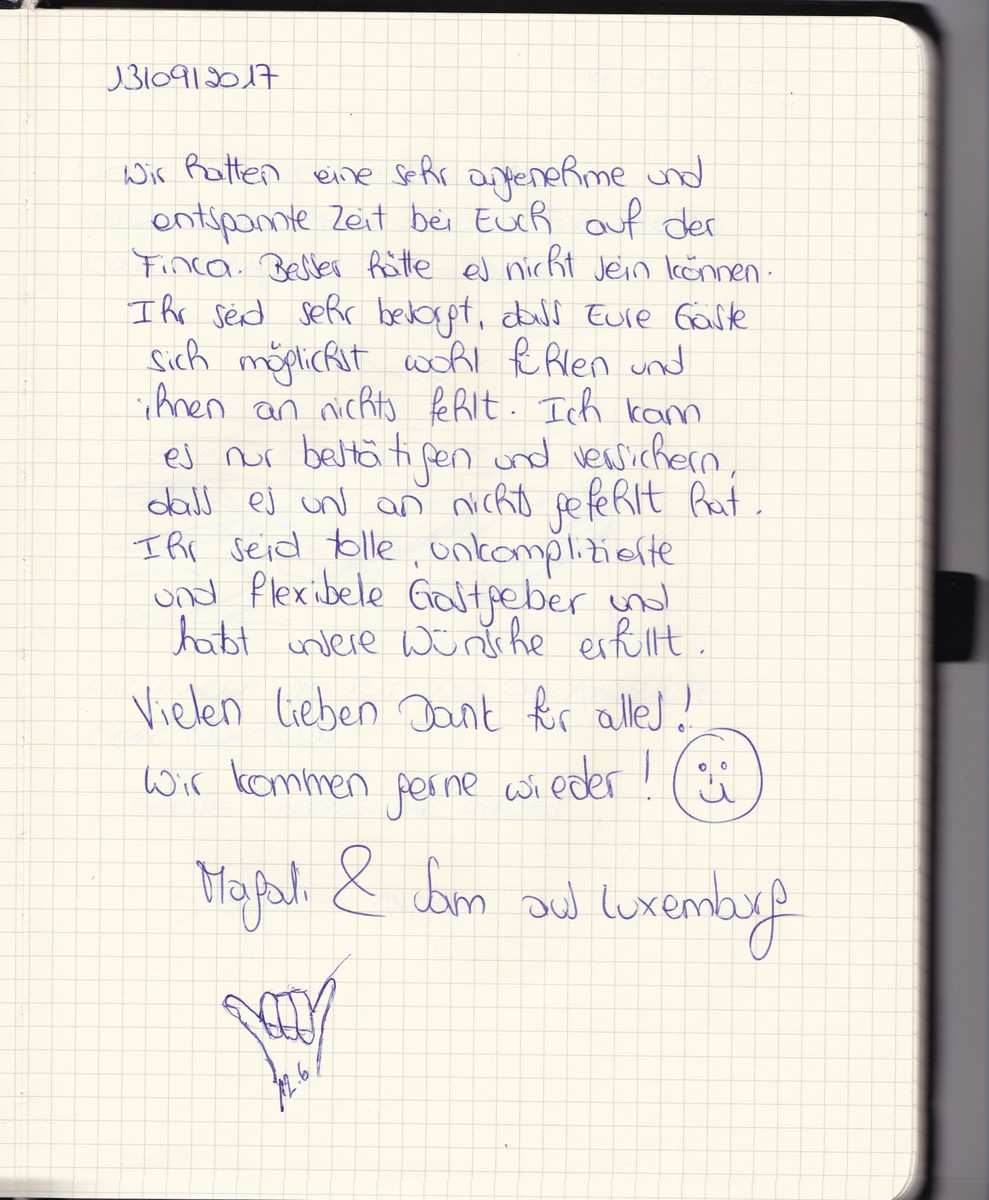 13/09/2017
Wir hatten eine sehr angenehme und
entspannte Zeit bei Euch auf der
Finca. Besser hätte es nicht sein können.
Ihr seid sehr besorgt, dass Eure Gäste
sich möglichst wohl fühlen und
ihnen an nichts fehlt. Ich kann
es nur bestätigen und versichern,
dass es uns an nichts gefehlt hat.
Ihr seid tolle, unkomplizierte
und flexibele Gastgeber und
habt unsere Wünsche erfüllt.
Vielen lieben Dank für alles!
Wir kommen gerne wieder!
Magali & Sam aus Luxemburg